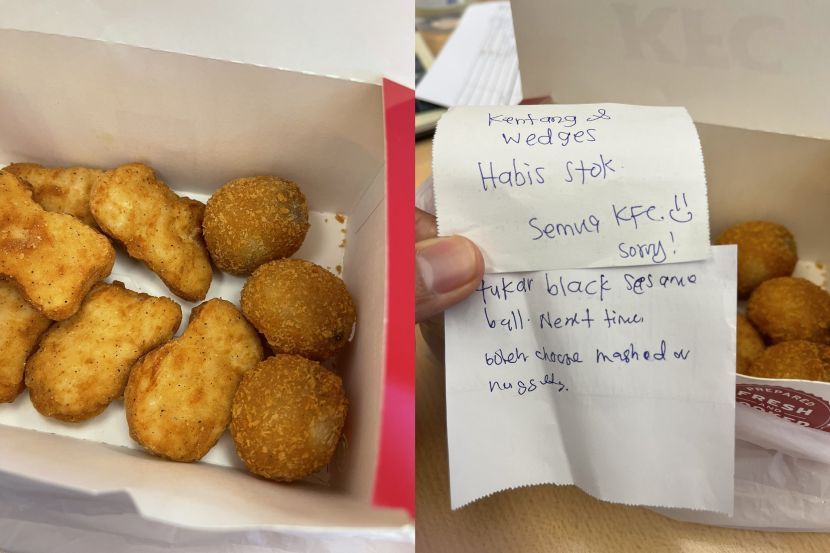 KFC
Kentang &
wedges
Habis stok.
Semua KFC.
sorry!
tukar black sesame
ball. Next time,
boleh choose mashed or
nuggets.
PREPARED
FRESH
AND